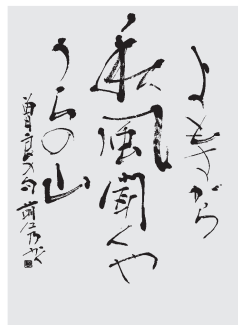 よもすがら
秋風聞くや
うらの山
曽良の句